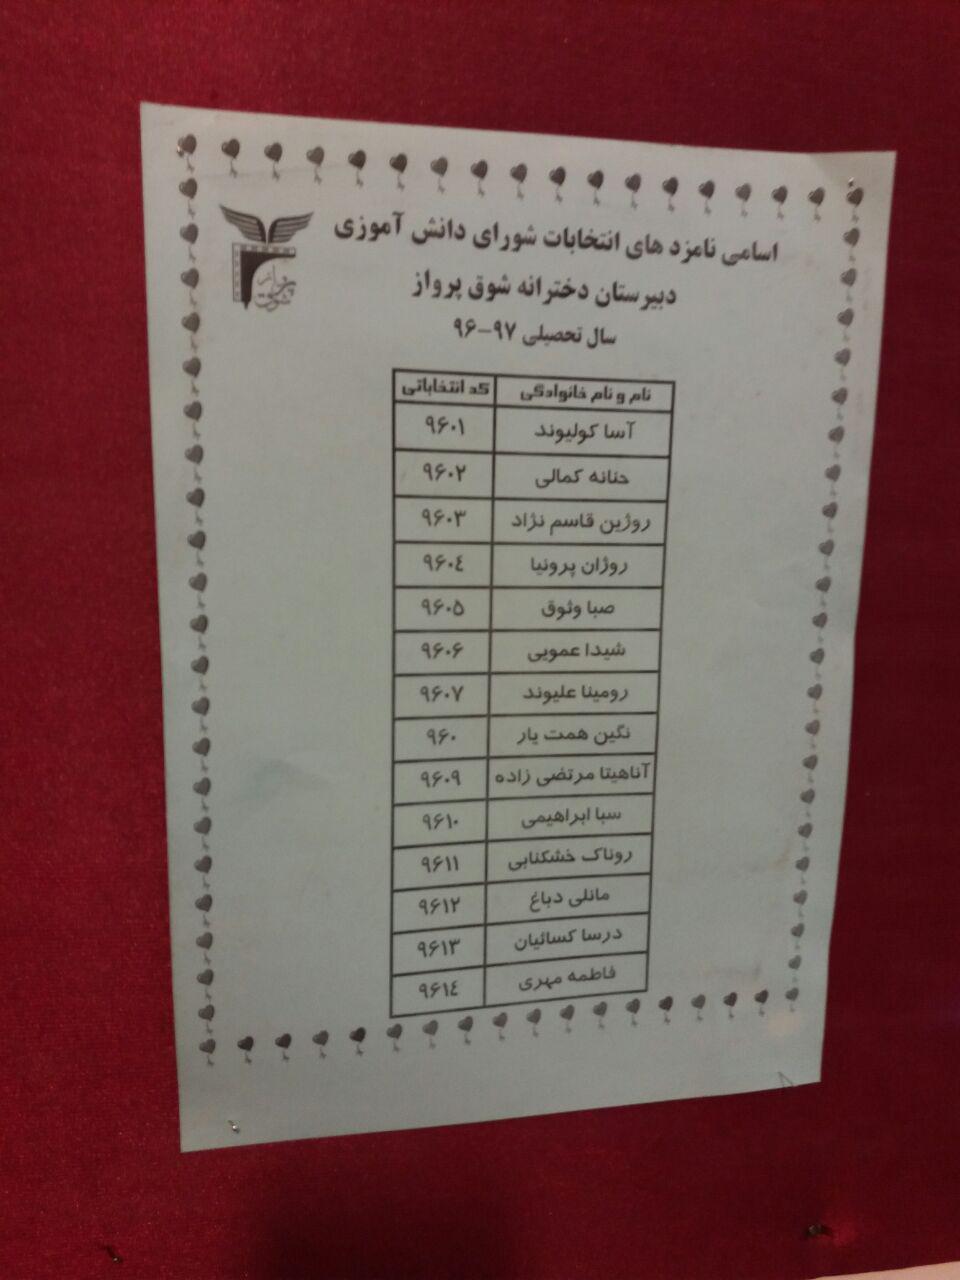 اسامی نامزد های انتخابات شورای دانش آموزی
دبیرستان دخترانه شوق پرواز
سال تحصیلی ۹۷-۹۶
شوق پرواز
نام و نام خانوادگی کد انتخاباتی
آسا کولیوند ۹۶۰۱
حنانه کمالی ۹۶۰۲
روژین قاسم نژاد ۹۶۰۳
روژان پرونیا ۹۶۰۴
صبا وثوق ۹۶۰۵
شیدا عمویی ۹۶۰۶
رومینا علیوند ۹۶۰۷
نگین همت یار ۹۶۰
آناهیتا مرتضی زاده ۹۶۰۹
سبا ابراهیمی ۹۶۱۰
روناک خشکنابی ۹۶۱۱
مانلی دباغ ۹۶۱۲
درسا کسائیان ۹۶۱۳
فاطمه مهری ۹۶۱۴